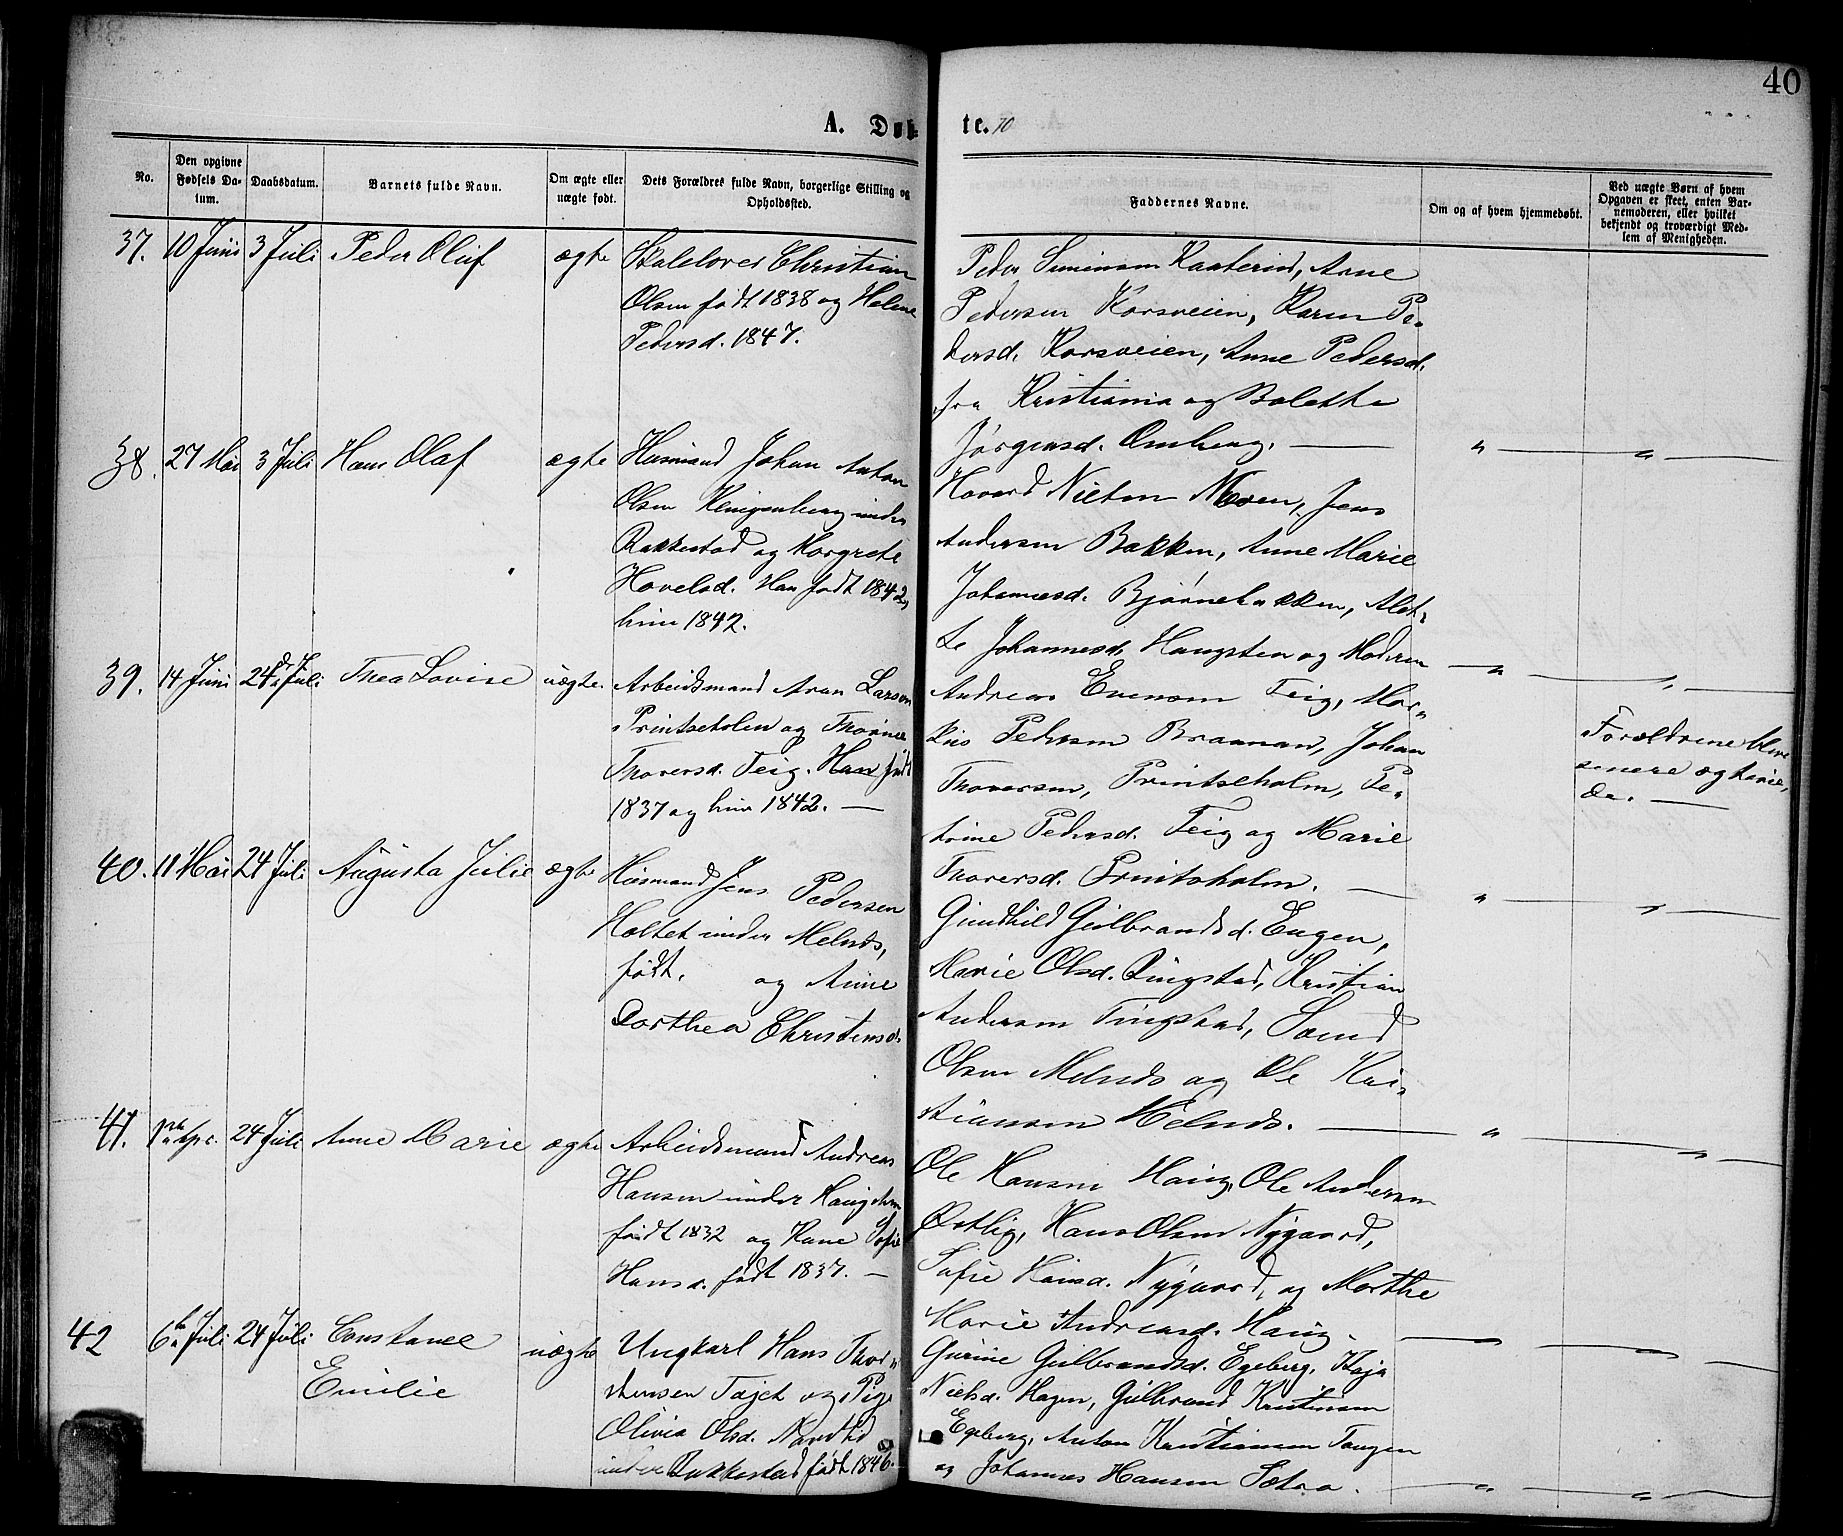 40
A. Døb-
te. 70
No.
Den opgivne
Fødsels Da-
tum.
Daabsdatum.
Barnets fulde Navn.
Om ægte eller
uægte født.
Dets Forældres fulde Navn, borgerlige Stilling og
Opholdssted.
Faddernes Navne.
Om og af hvem hjemmedøbt.
Ved uægte Børn af hvem
Opgaven er skeet, enten Bar-
nemoderen, eller hvilket
bekjendt og troværdigt Med-
lem af Menigheden.
37. 10 Juni 3 Juli Peder Oluf ægte
Christian
Olsen født 1838 og Helene
Pedersd. 1847.
Peder Simensen Arne
Pedersen Korsveien, Karen Pe-
dersd. Korsveien, Anne Pedersd.
fra Kristiania og Bolette
Jørgensd. Omberg. — " — " —
38. 27 Mai 3 Juli Hans Olaf ægte
Husmand Johan Anton
Olsen Klingenberg under
Rakkestad og Margrete
Hovelsd. Han født 1842,
hun 1842.
Havard Nielsen Moen, Jens
Andersen Bakken, Anne Marie
Johannesd. Bjørnebakken, Alet-
te Johannesd. Haugsten og Moderen — " — " —
39. 14 Juni 24 de Juli Thea Lovise uægte.
Arbeidsmand Aran Larsen
Printseholen og Thorine
Thoresd. Teig. Han født
1837 og hun 1842. —
Andreas Evensen Teig, Mar-
kus Pedersen Braanan, Johan
Thoversen, Printseholm, Pe-
trine Pedersd. Teig og Marie
Thoversd. Printsholm. — " — " —
Forældrene bleve
senere ægtevie-
de. —
40. 11 Mai 24 Juli Augusta Julie ægte
Husmand Jens Pedersen
Holtet under Melnds,
født. og Anne
Dorthea Christensd.
Gundhild Gulbrandsd. Engen,
Marie Olsd. Ringstad, Kristian
Andersen Tingstad,
Olsen Melnds og Ole Kri-
stiansen Melnds. — " — " —
41. 1 24 Juli Anne Marie ægte
Arbeidsmand Andreas
Hansen under Haugsten
født 1832 og Hane Sofie
Hansd. født 1837. —
Ole Hansen Haug, Ole Andersen
Østlig, Hans Olsen Nygaard,
Sofie Hansd. Nygaard, og Marthe
Marie Andreasd. Haug. — " — " —
42 6 Juli 24 Juli Constance
Emilie uægte
Ungkarl Hans Thor-
stensen Tajet og Pige
Olivia Olsd.
under Rakkestad født 1846.
Gurine Gulbrandsd. Egeberg, Kaja
Nielsd. Hagen, Gulbrand Kristiansen
Egeberg, Anton Kristiansen Tangen
og Johannes Hansen Sætra. — " — " —